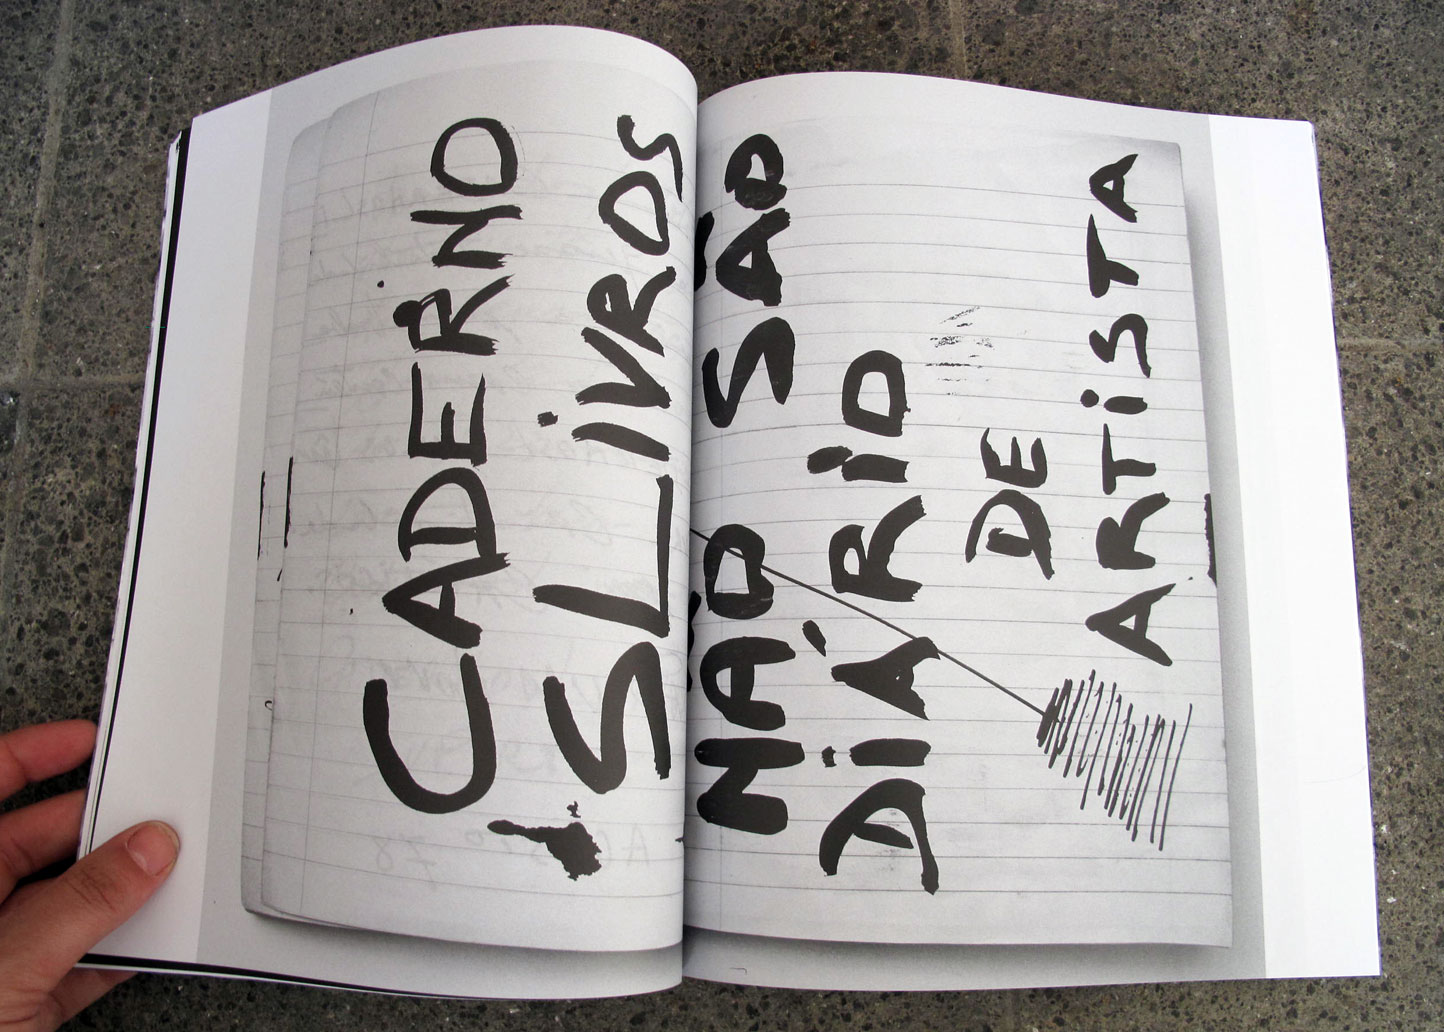 CADERNO
SLIVROS
NÃO SÃO
DIÁRIO
DE
ARTISTA